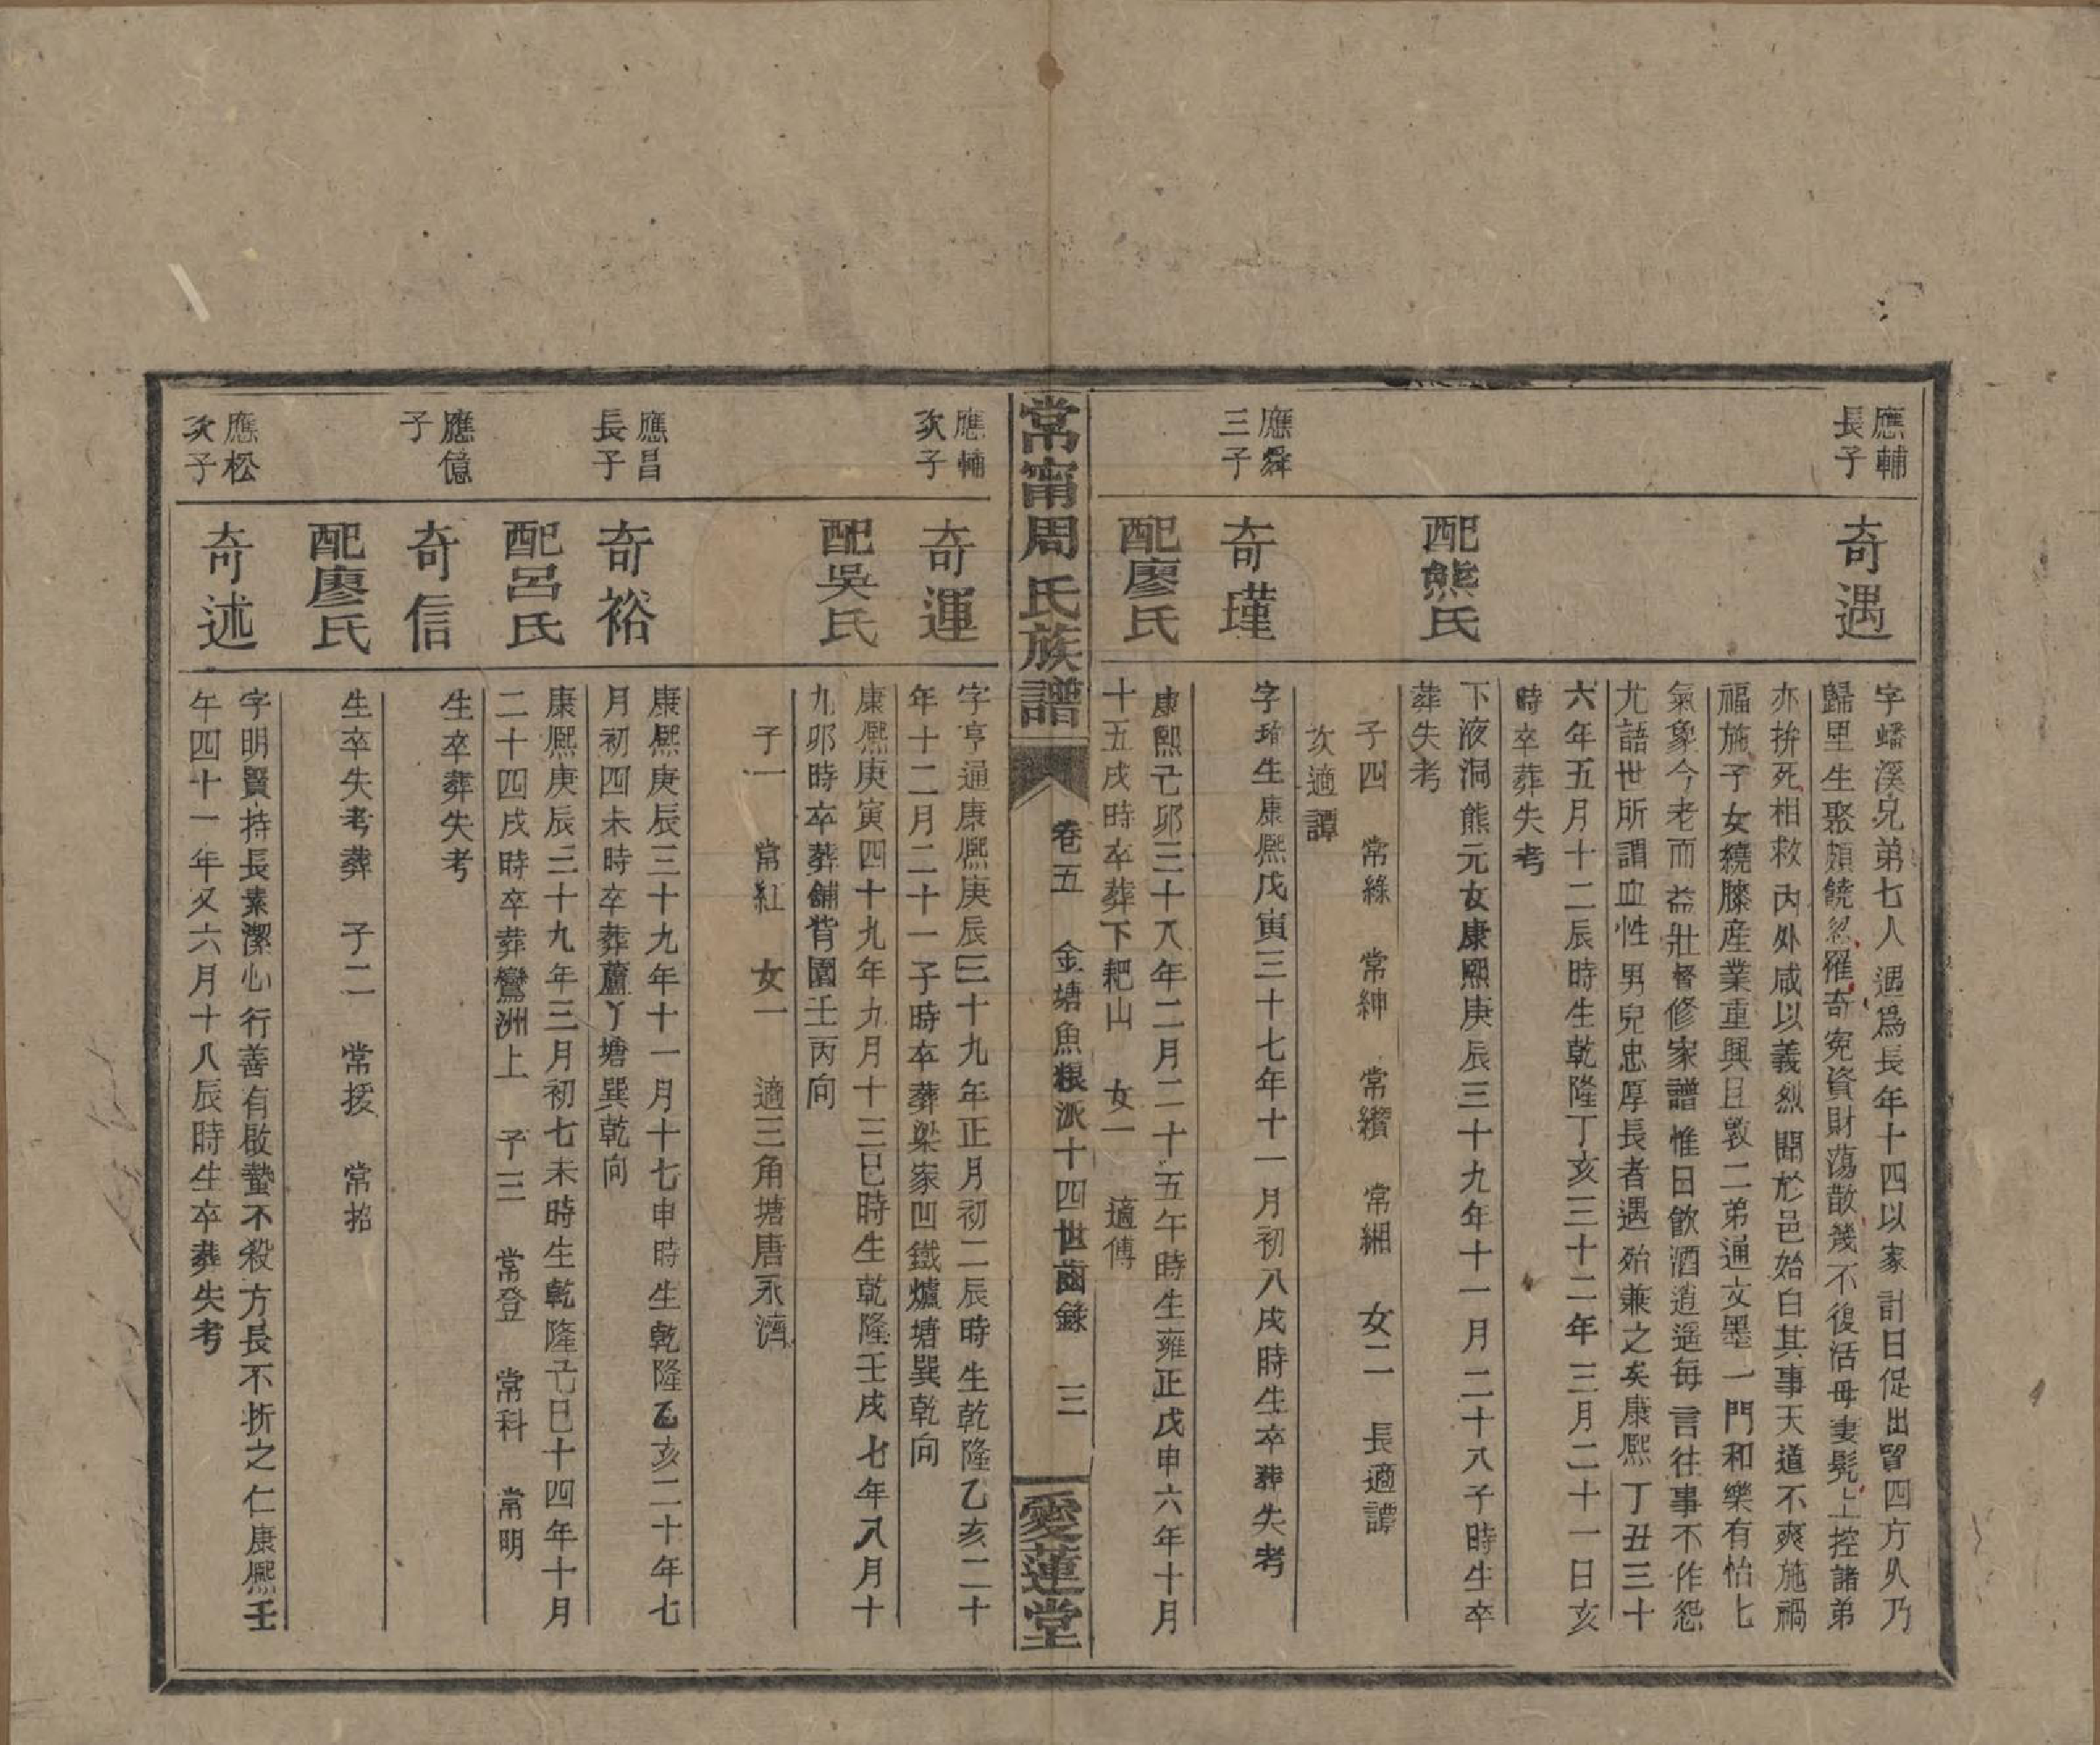 應輔
長子
奇遇
字蟠溪兄弟七人遇爲長年十四以家計日促出貿四方久乃
歸里生聚頗饒忽罹奇冤資財蕩散幾不復活母妻髡上控諸弟
亦拚死相救內外咸以義烈聞於邑始白其事天道不爽施禍
福施子女繞膝産業重興且敦二弟通文墨一門和樂有怡
氣象今老而益壯督修家譜惟日飮酒逍遥每言往事不作怨
尤語世所謂血性男兒忠厚長者遇殆兼之矣康熙丁丑三十
六年五月十二辰時生乾隆丁亥三十二年三月二十一日亥
時卒葬失考
配熊氏
下液洞熊元女康熙庚辰三十九年十一月二十八子時生卒
葬失考
子四 常綠 常紳 常纘 常緗 女二 長適譚
次適譚
應舜
三子
奇瑾
字瑃生康熙戊寅三十七年十一月初八戌時生卒葬失考
配廖氏
康熙己卯三十八年二月二十五午時生雍正戊申六年十月
十五戌時卒葬下耙山 女一 適傅
常甯周氏族譜 卷五 金塘魚粮派十四世齒錄 三 愛蓮堂
應輔
次子
奇運
字亨通康熙庚辰三十九年正月初二辰時生乾隆乙亥二十
年十二月二十一子時卒葬梁家凹鐵爐塘巽乾向
配吳氏
康熙庚寅四十九年九月十三巳時生乾隆壬戌七年八月十
九卯時卒葬舖背園壬丙向
子一 常紅 女一 適三角塘唐永濟
應昌
長子
奇裕
康熙庚辰三十九年十一月十七申時生乾隆乙亥二十年七
月初四未時卒葬蘆丫塘巽乾向
配呂氏
康熙庚辰三十九年三月初七未時生乾隆己巳十四年十月
二十四戌時卒葬鸞洲上 子三 常登 常科 常明
應億
子
奇信
生卒葬失考
配廖氏
生卒失考葬 子二 常接 常招
應松
次子
奇述
字明賢持長素潔心行善有啟蟄不殺方長不折之仁康熙壬
午四十一年又六月十八辰時生卒葬失考